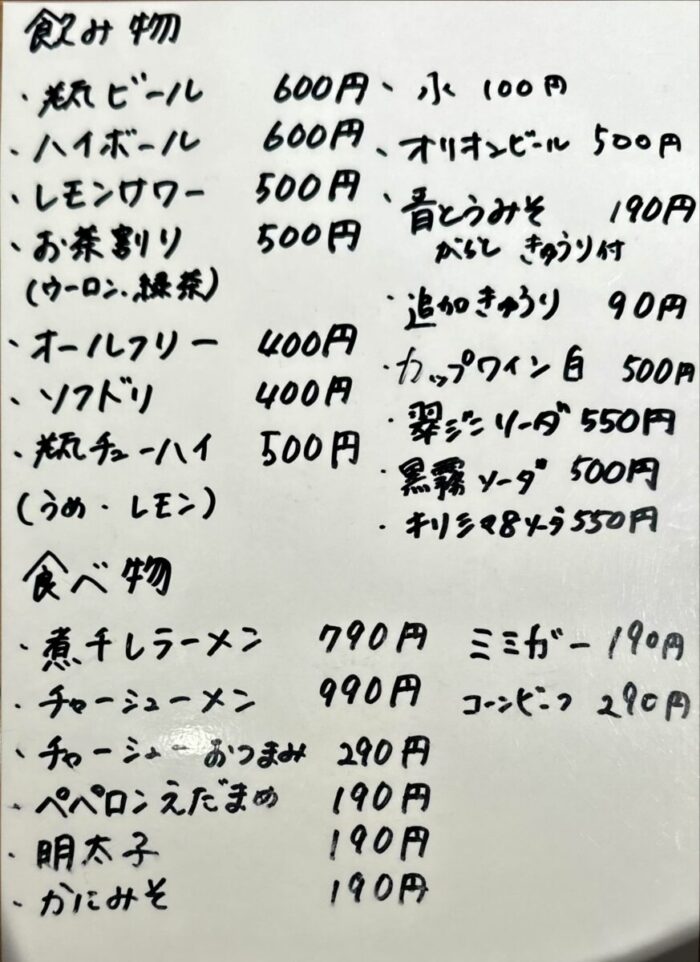 飲み物
・瓶ビール 600円
・ハイボール 600円
・レモンサワー 500円
・お茶割り 500円
(ウーロン・緑茶)
・オールフリー 400円
・ソフドリ 400円
・瓶チューハイ 500円
(うめ・レモン)
・水 100円
・オリオンビール 500円
・音とうみそ 190円
からし きゅうり付
・追加きゅうり 90円
・カップワイン白 500円
・翠ジンソーダ 550円
・黒霧ソーダ 500円
・キリシマ8ソーダ 550円
食べ物
・煮干しラーメン 790円
・チャーシューメン 990円
・チャーシューおつまみ 290円
・ペペロンえだまめ 190円
・明太子 190円
・かにみそ 190円
ミミガー 190円
コーンビーフ 290円